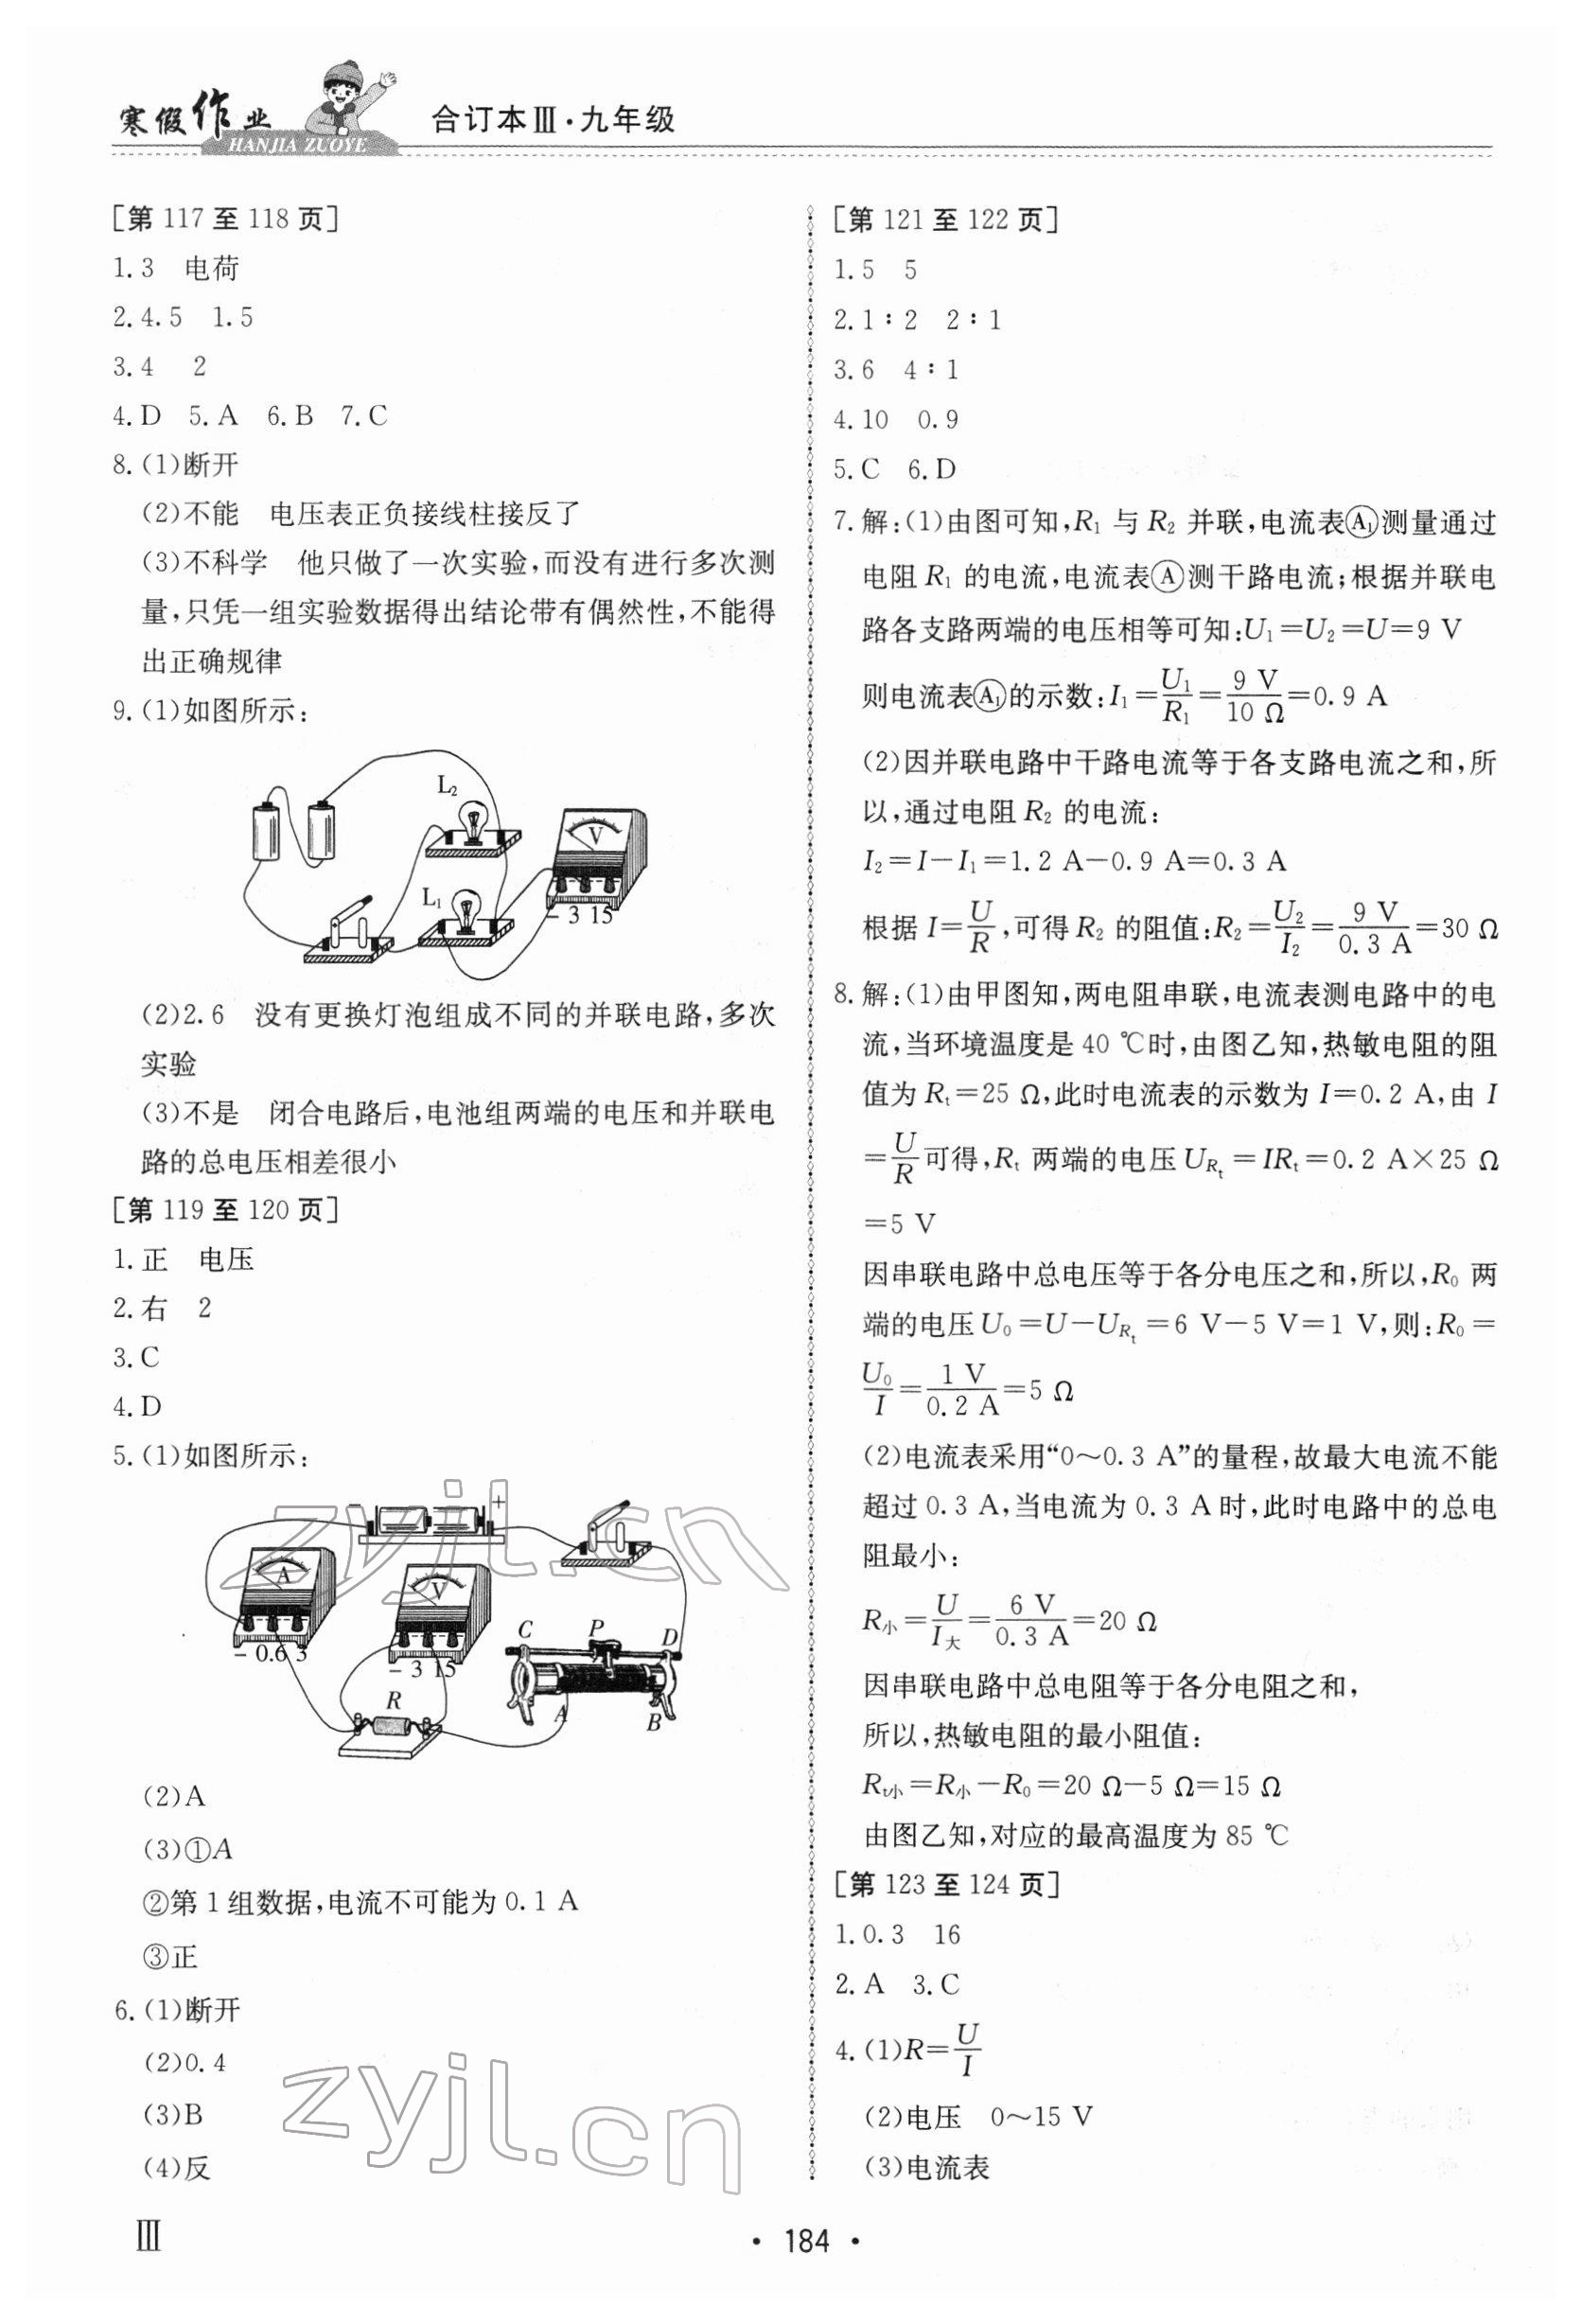 寒假作业
HANJIA ZUOYE
合订本Ⅲ·九年级
[第 117 至 118 页]
1.3 电荷
2.4.5 1.5
3.4 2
4.D 5.A 6.B 7.C
8.(1)断开
(2)不能 电压表正负接线柱接反了
(3)不科学 他只做了一次实验,而没有进行多次测
量,只凭一组实验数据得出结论带有偶然性,不能得
出正确规律
9.(1)如图所示:
L₂
V
L₁
- 3 15
(2)2.6 没有更换灯泡组成不同的并联电路,多次
实验
(3)不是 闭合电路后,电池组两端的电压和并联电
路的总电压相差很小
[第 119 至 120 页]
1.正 电压
2.右 2
3.C
4.D
5.(1)如图所示:
- +
A
V
- 0.6 3
- 3 15
C P D
R
A B
(2)A
(3)①A
②第 1 组数据,电流不可能为 0.1 A
③正
6.(1)断开
(2)0.4
(3)B
(4)反
[第 121 至 122 页]
1.5 5
2.1∶2 2∶1
3.6 4∶1
4.10 0.9
5.C 6.D
7.解:(1)由图可知,R₁ 与 R₂ 并联,电流表Ⓐ₁测量通过
电阻 R₁ 的电流,电流表Ⓐ测干路电流;根据并联电
路各支路两端的电压相等可知:U₁=U₂=U=9 V
则电流表Ⓐ₁的示数:I₁=U₁/R₁=9 V/10 Ω=0.9 A
(2)因并联电路中干路电流等于各支路电流之和,所
以,通过电阻 R₂ 的电流:
I₂=I-I₁=1.2 A-0.9 A=0.3 A
根据 I=U/R,可得 R₂ 的阻值:R₂=U₂/I₂=9 V/0.3 A=30 Ω
8.解:(1)由甲图知,两电阻串联,电流表测电路中的电
流,当环境温度是 40 ℃时,由图乙知,热敏电阻的阻
值为 Rt=25 Ω,此时电流表的示数为 I=0.2 A,由 I
=U/R可得,Rt 两端的电压 U_Rt=IRt=0.2 A×25 Ω
=5 V
因串联电路中总电压等于各分电压之和,所以,R₀ 两
端的电压 U₀=U-U_Rt=6 V-5 V=1 V,则:R₀=
U₀/I=1 V/0.2 A=5 Ω
(2)电流表采用“0～0.3 A”的量程,故最大电流不能
超过 0.3 A,当电流为 0.3 A 时,此时电路中的总电
阻最小:
R小=U/I大=6 V/0.3 A=20 Ω
因串联电路中总电阻等于各分电阻之和,
所以,热敏电阻的最小阻值:
Rt小=R小-R₀=20 Ω-5 Ω=15 Ω
由图乙知,对应的最高温度为 85 ℃
[第 123 至 124 页]
1.0.3 16
2.A 3.C
4.(1)R=U/I
(2)电压 0～15 V
(3)电流表
zyjl.cn
zyjl.cn
Ⅲ
· 184 ·